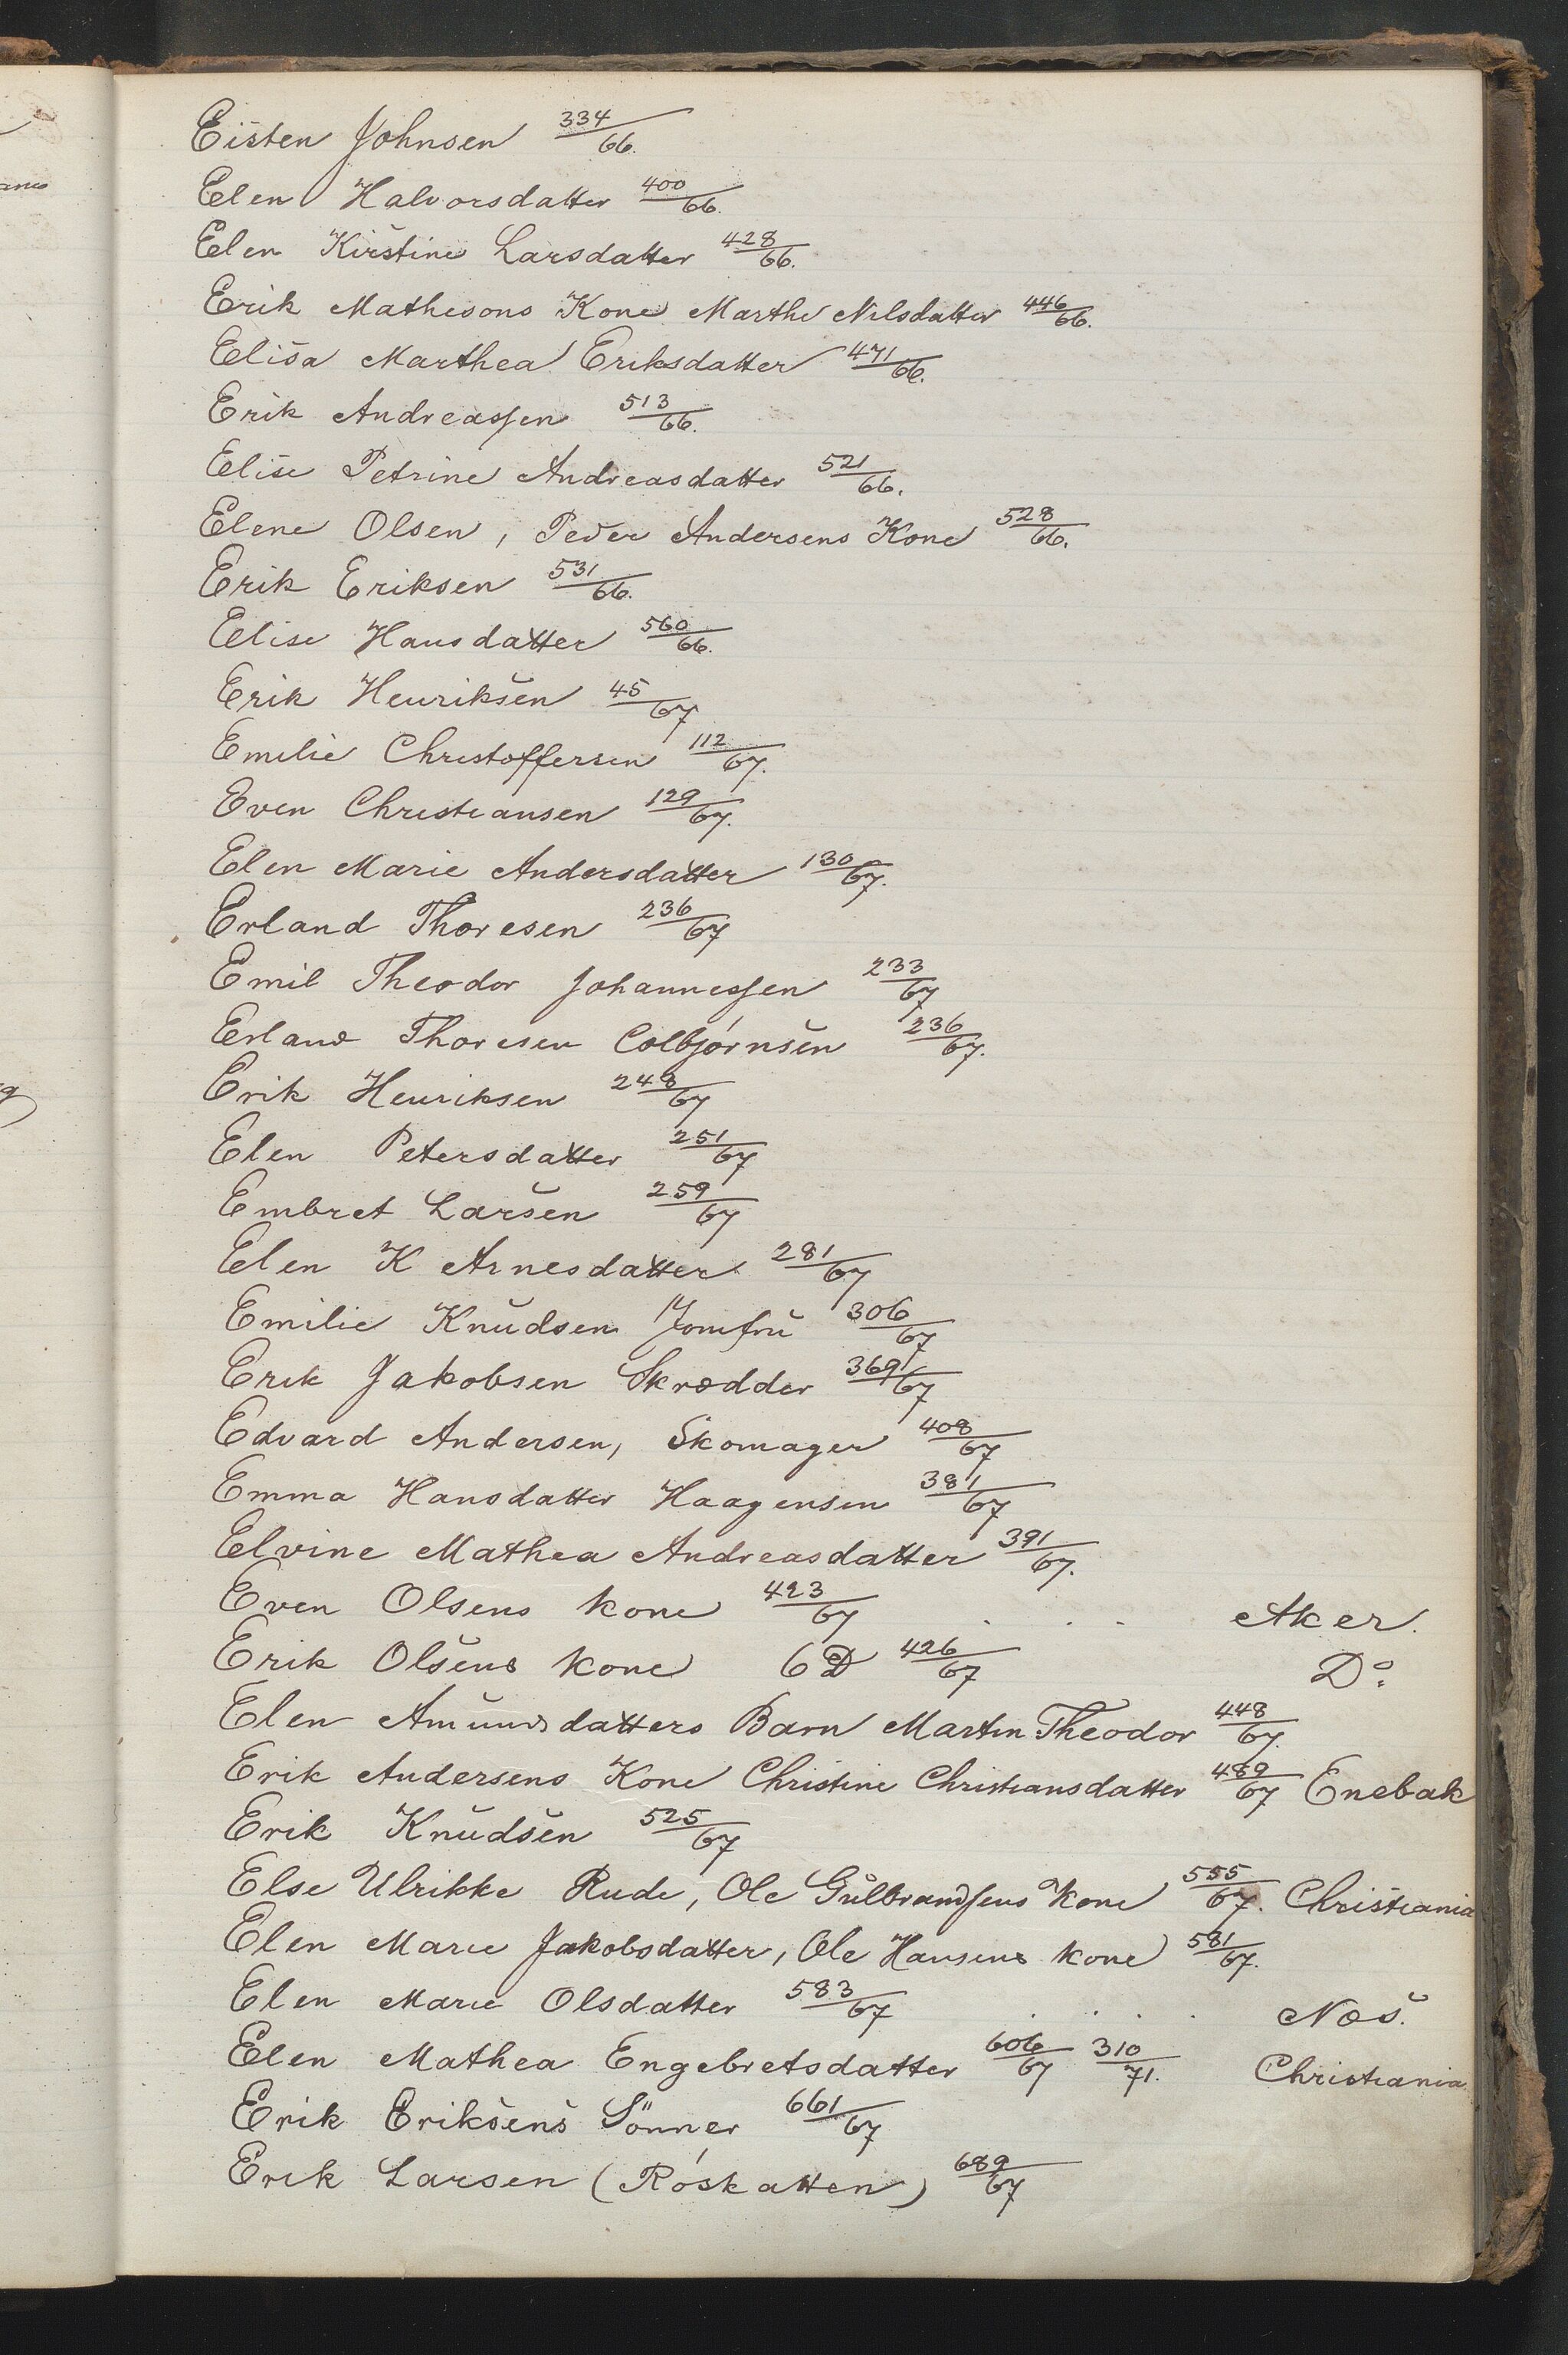 Eisten Johnsen 334/66.
Elen Halvorsdatter 400/66.
Elen Kirstine Larsdatter 428/66.
Erik Mathesons Kone Marthe Nilsdatter 446/66.
Elisa Marthea Eriksdatter 471/66.
Erik Andreassen 513/66.
Elise Petrine Andreasdatter 521/66.
Elene Olsen, Peder Andersens Kone 528/66.
Erik Eriksen 531/66.
Elise Hansdatter 560/66.
Erik Henriksen 45/67
Emelie Christoffersen 112/67.
Even Christiansen 129/67.
Elen Marie Andersdatter 130/67.
Erland Thoresen 236/67
Emil Theodor Johannessen 233/67
Erland Thoresen Colbjørnsen 236/67.
Erik Henriksen 248/67
Elen Petersdatter 251/67
Embret Larsen 259/67
Elen K Arnesdatter 281/67
Emilie Knudsen Jomfru 306/67
Erik Jakobsen Skrædder 369/67
Edvard Andersen, Skomager 408/67
Emma Hansdatter Haagensen 381/67
Elvine Mathea Andreasdatter 391/67.
Even Olsens kone 423/67 . . . Aker.
Erik Olsens kone 6D 426/67 Do.
Elen Amundsdatters Barn Martin Theodor 448/67.
Erik Andersens Kone Christine Christiansdatter 489/67 Enebak
Erik Knudsen 525/67
Else Ulrikke Rude, Ole Gulbrandsens Kone 555/67. Christiania
Elen Marie Jakobsdatter, Ole Hansens kone 581/67.
Elen Marie Olsdatter 583/67 . . . Næs.
Elen Mathea Engebretsdatter 606/67 310/71. Christiania
Erik Eriksens Sønner 661/67
Erik Larsen (Røskatten) 689/67